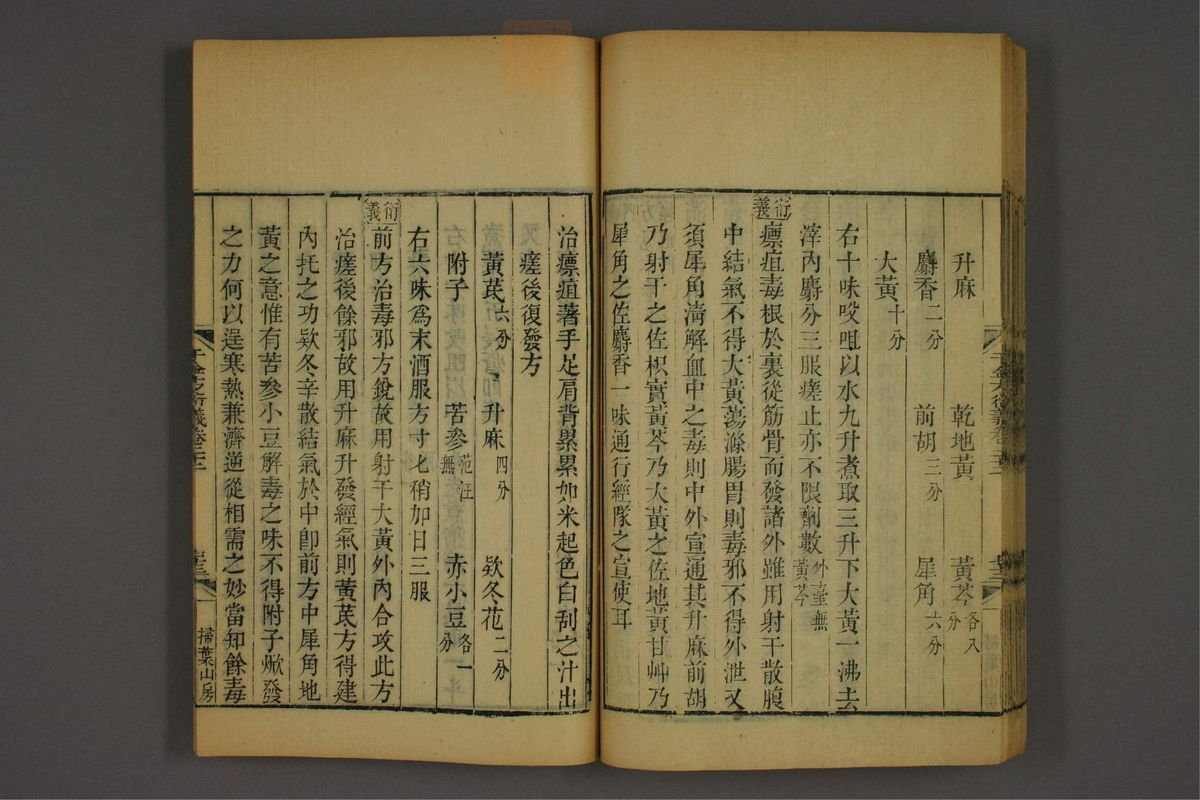 升麻　乾地黃　黃芩各八分
麝香二分　前胡三分　犀角六分
大黃十分
右十味㕮咀以水九升煮取三升下大黃一沸去
滓內麝分三服瘥止亦不限劑數外臺無黃芩
衍義
瘭疽毒根於裏從筋骨而發諸外雖用射干散腹
中結氣不得大黃蕩滌腸胃則毒邪不得外泄又
須犀角清解血中之毒則中外宣通其升麻前胡
乃射干之佐枳實黃芩乃大黃之佐地黃甘艸乃
犀角之佐麝香一味通行經隧之宣使耳
千金方衍義卷二十二
治瘭疽著手足肩背累累如米起色白刮之汁出
瘥後復發方
黃芪六分　升麻四分　欵冬花二分
附子　苦參范汪無　赤小豆各一分
右六味為末酒服方寸匕稍加日三服
衍義
前方治毒邪方銳故用射干大黃外內合攻此方
治瘥後餘邪故用升麻升發經氣則黃芪方得建
內托之功欵冬辛散結氣於中即前方中犀角地
黃之意惟有苦參小豆解毒之味不得附子焮發
之力何以逞寒熱兼濟逆從相需之妙當知餘毒
千金方衍義卷二十二
掃葉山房